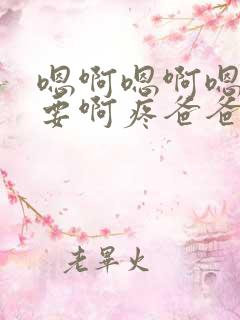 嗯啊嗯啊嗯
要啊疼爸爸
老旱火